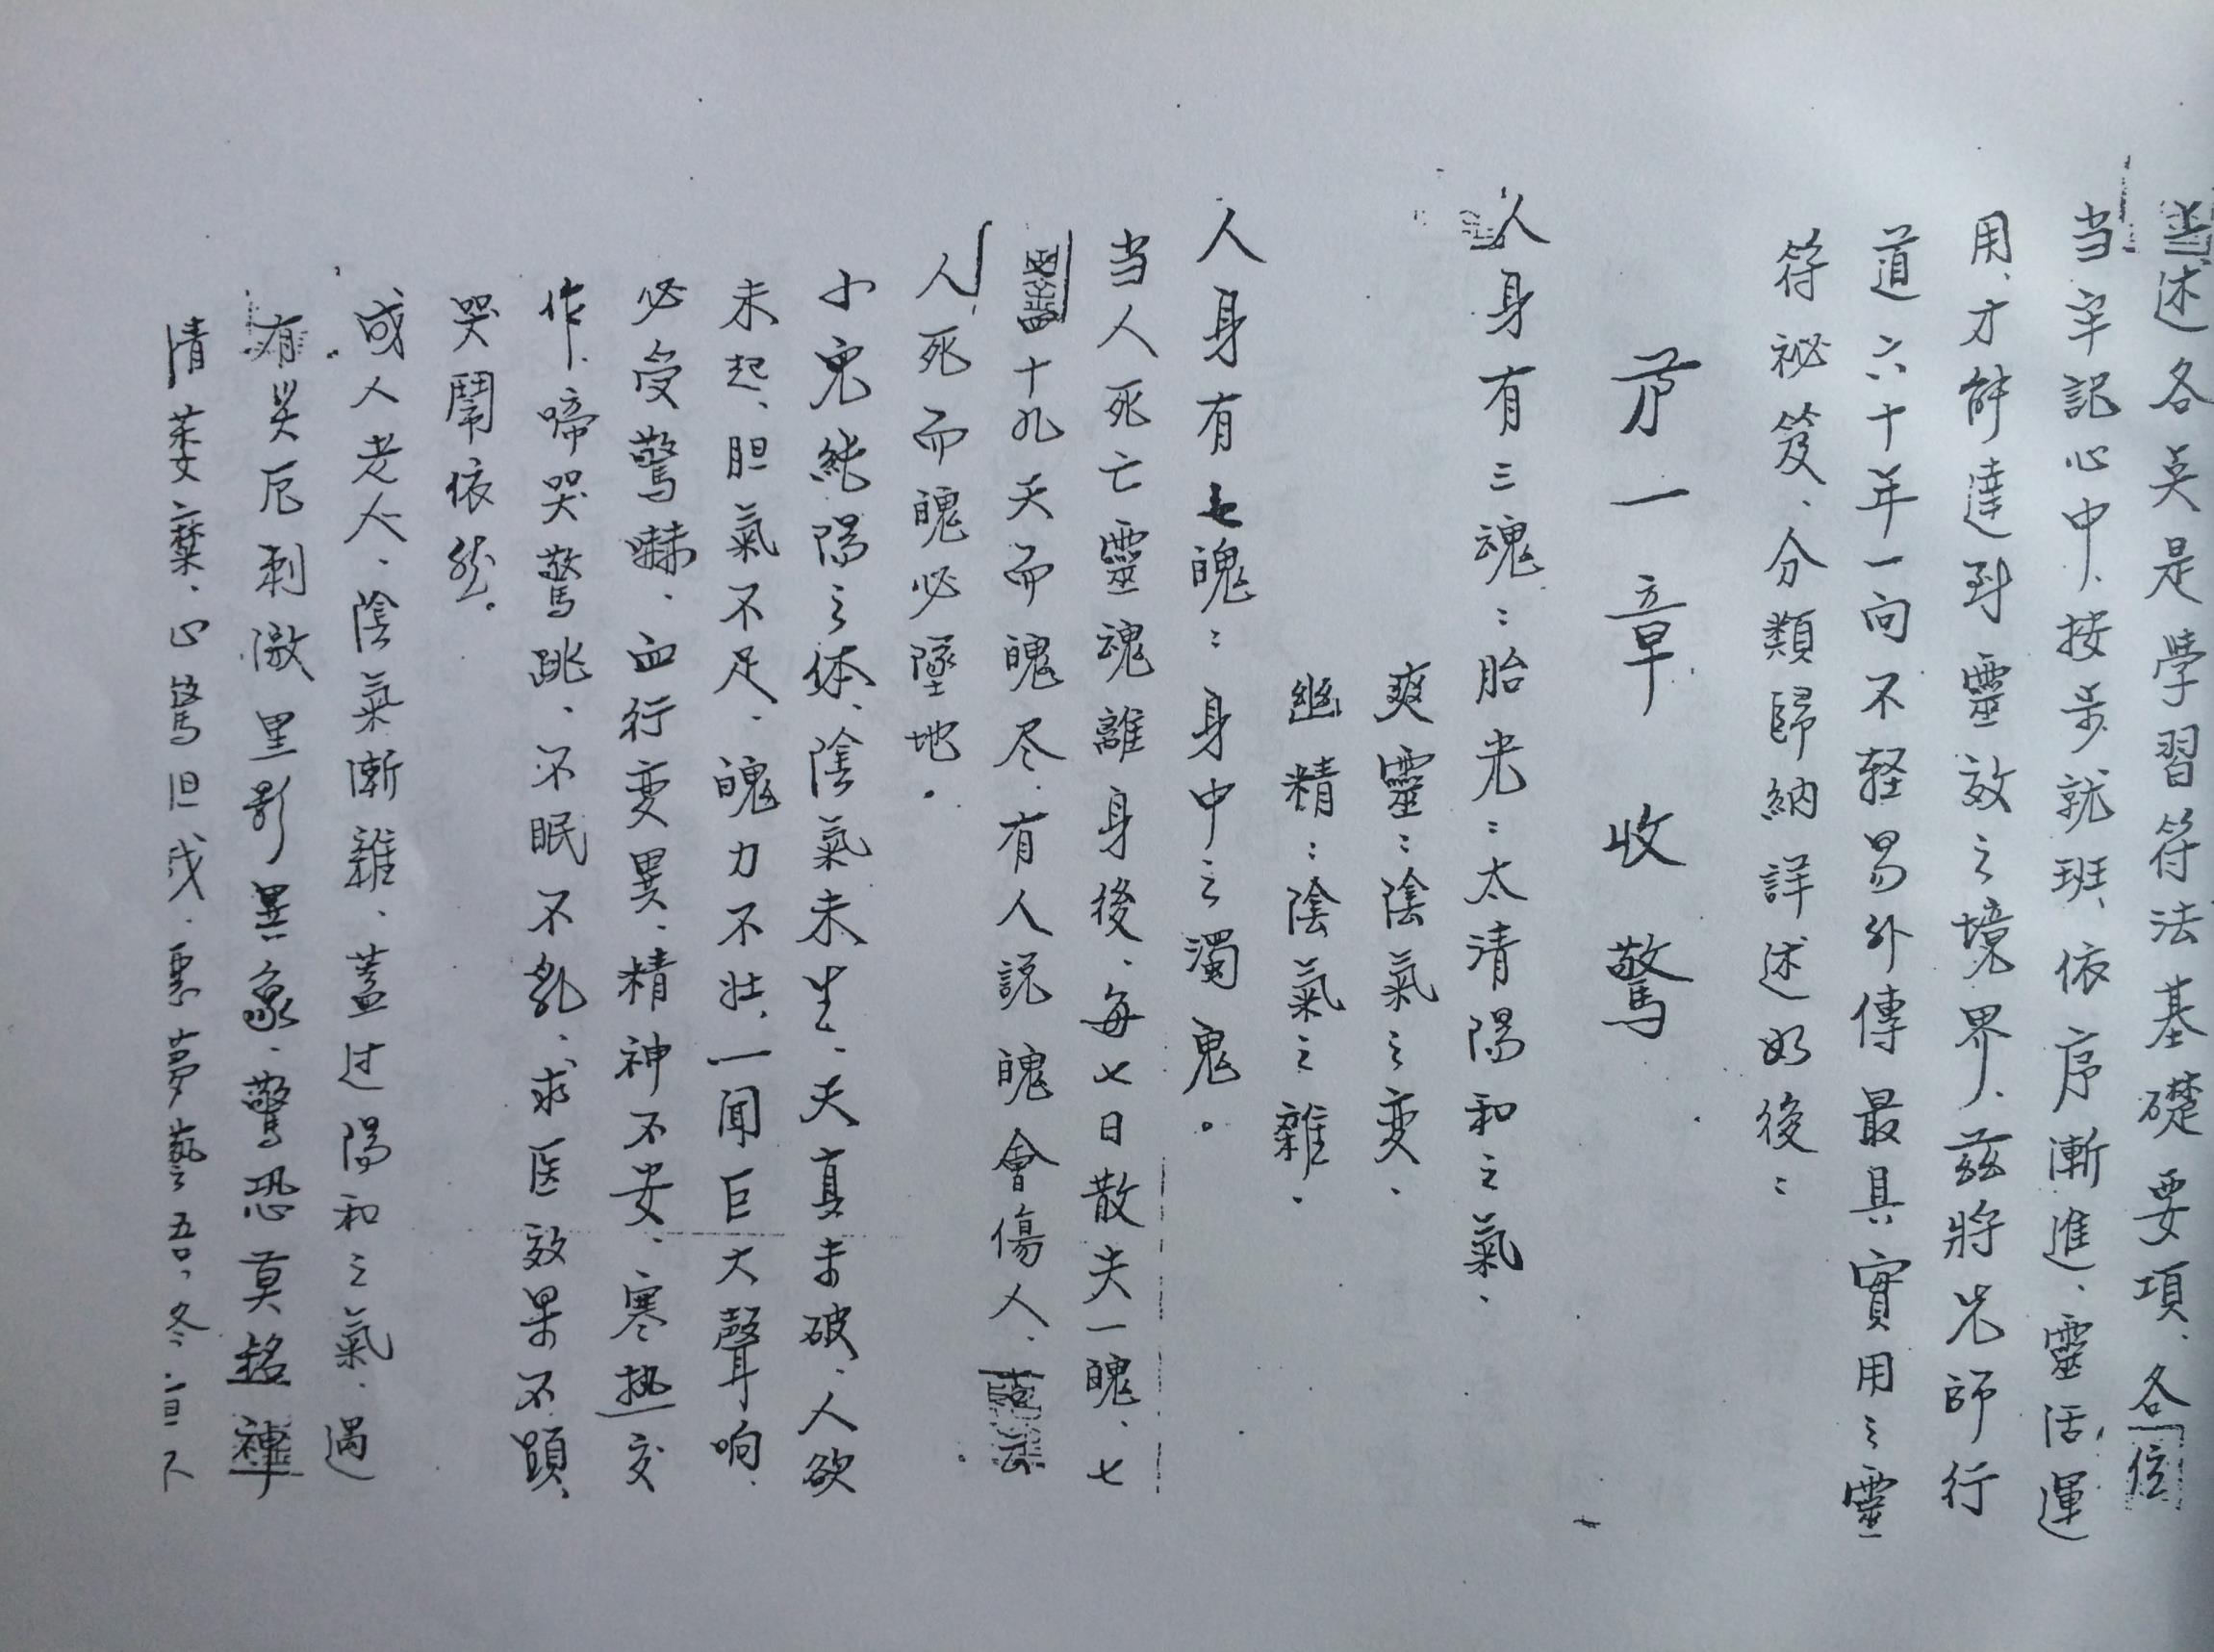 述各奌是學習符法基礎要項、各位
当牢記心中、按步就班、依序漸進、靈活運
用、才能達到靈效之境界、茲將先師行
道六十年一向不轻易外傳最具實用之靈
符祕笈、分類歸納詳述如後：
苐一章 收驚
人身有三魂：胎光：太清陽和之氣、
爽靈：陰氣之变、
幽精：陰氣之雜、
人身有七魄：身中之濁鬼。
当人死亡靈魂離身後、每七日散失一魄、七
十九天而魄尽、有人説魄會傷人、
人死而魄必墜地。
小児純陽之体、陰氣未生、天真未破、人欲
未起、胆氣不足、魄力不壮、一聞巨大聲响、
必受驚嚇、血行变異、精神不安、寒热交
作、啼哭驚跳、不眠不乳、求医效果不顕、
哭鬧依然。
成人老人、陰氣漸雜、蓋过陽和之氣、遇
有災厄刺激里影異象、驚恐莫銘、神
情萎靡、心驚胆战、惡夢